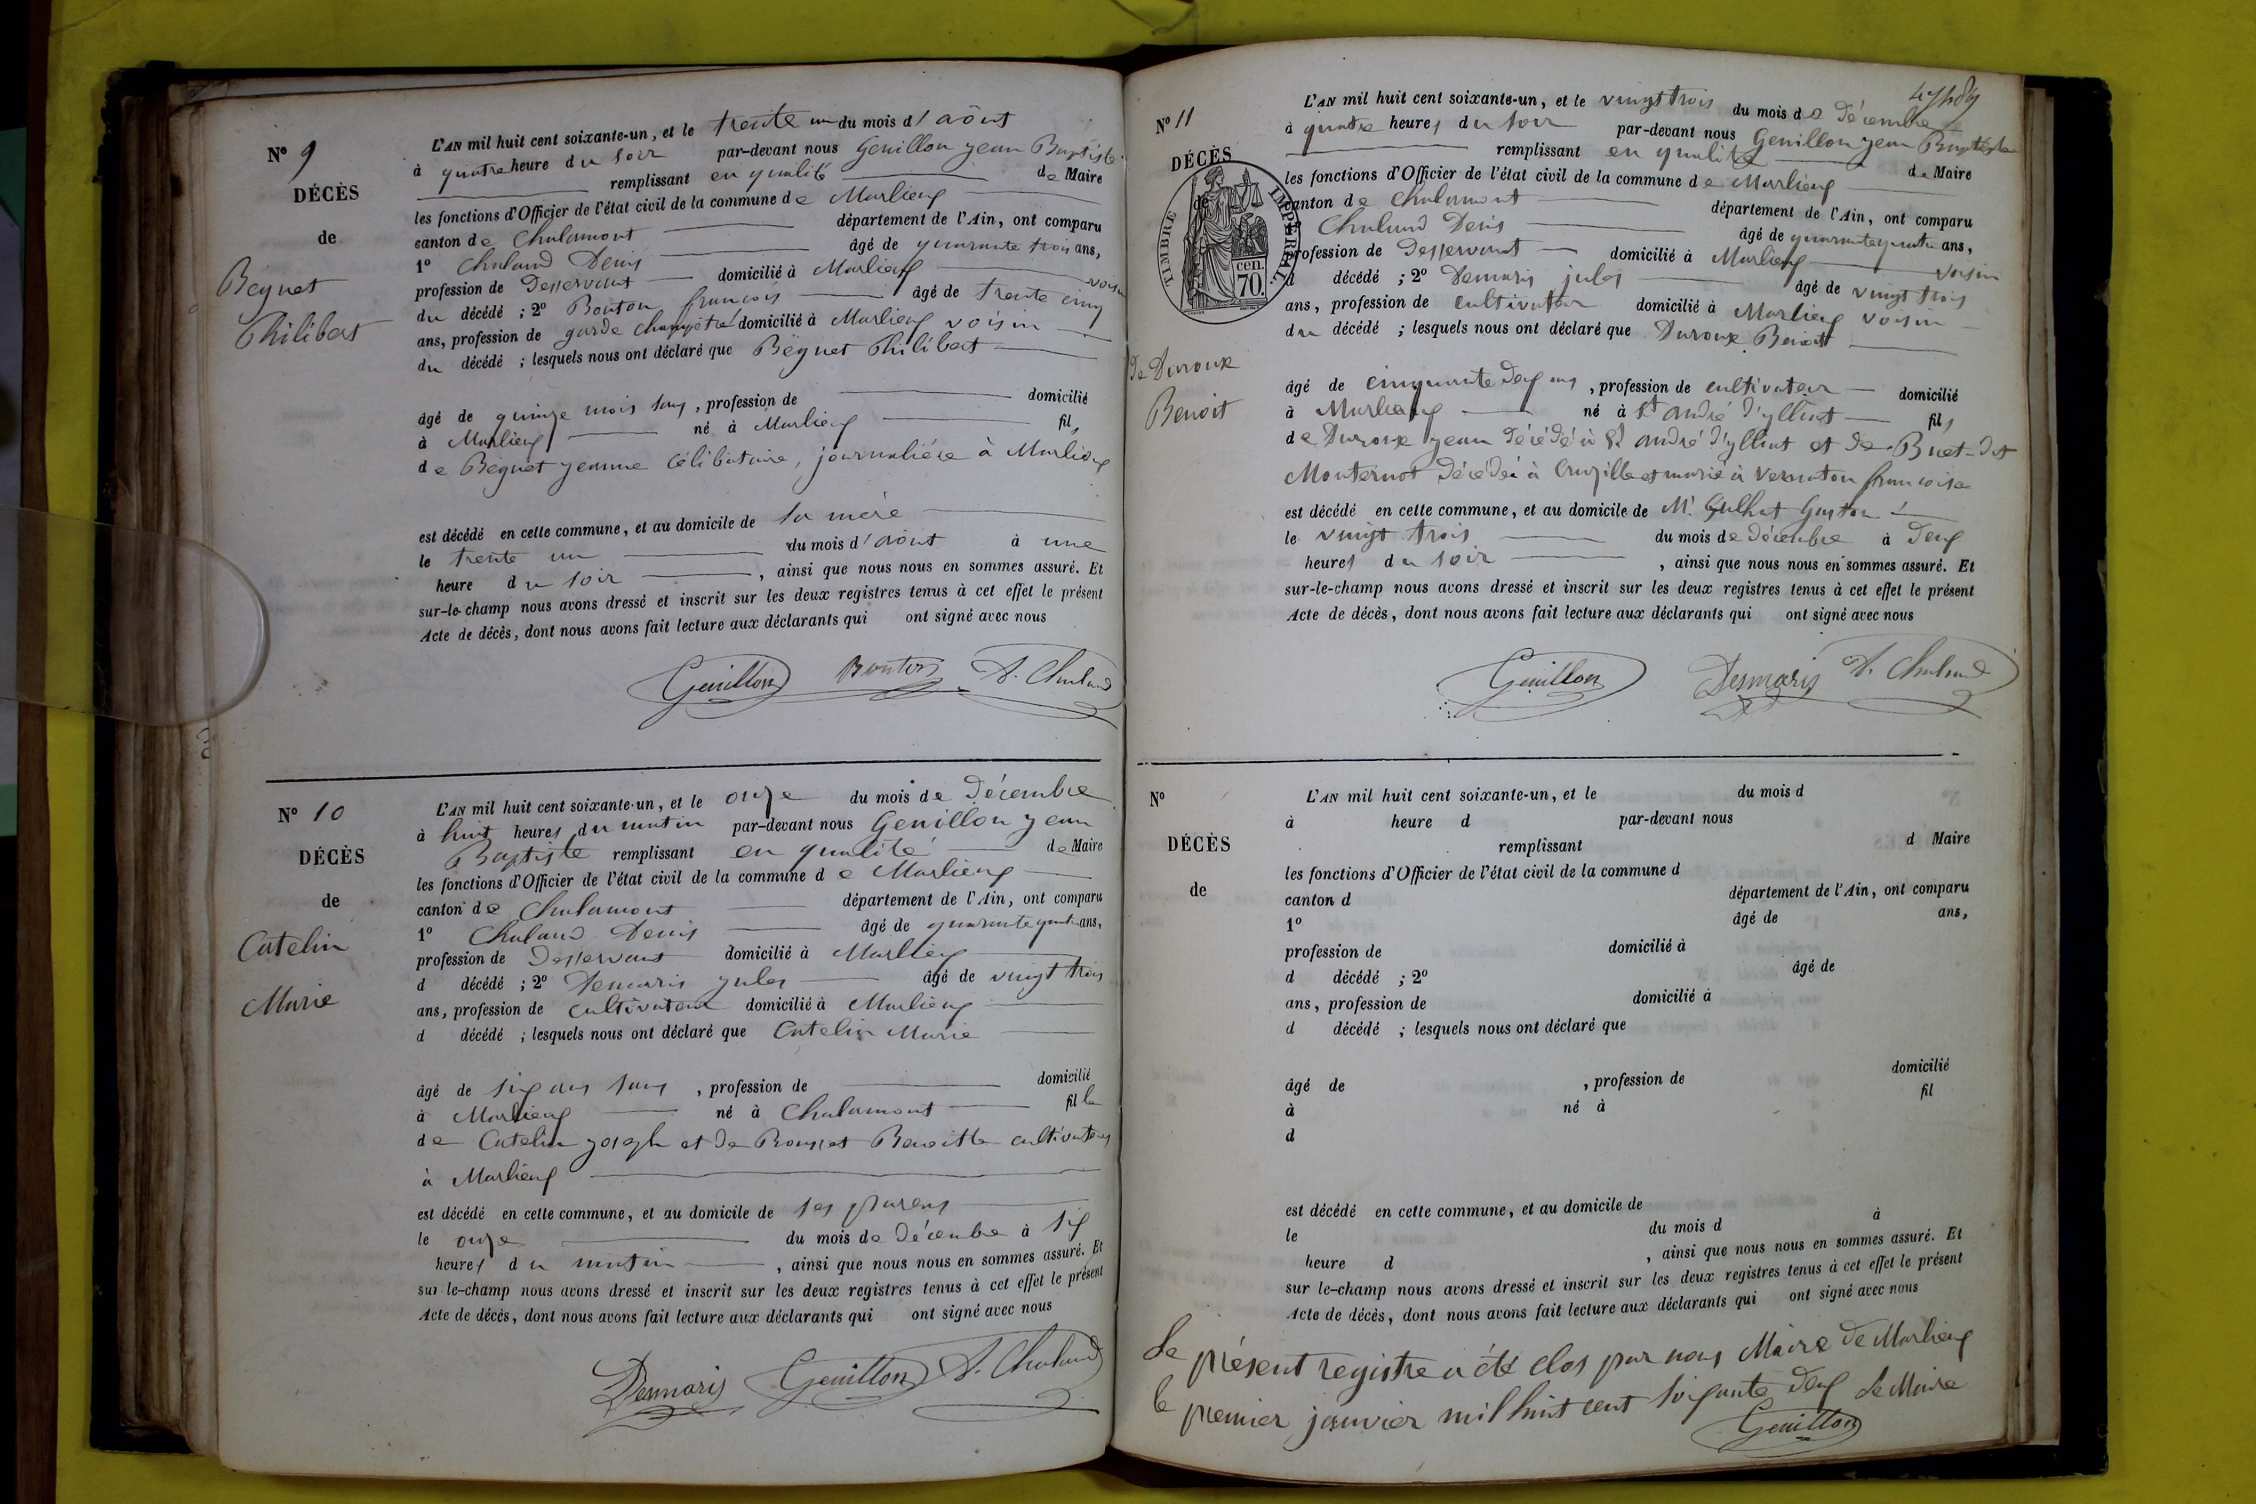 N° 9
DÉCÈS
de
Béguet
Philibert
L'AN mil huit cent soixante-un, et le trente un du mois d'août
à quatre heure du soir par-devant nous Genillon jean Baptiste
remplissant en qualité de Maire
les fonctions d'Officier de l'état civil de la commune de Marlieux
canton de Chalamont département de l'Ain, ont comparu
1° Chaland Denis âgé de quarante trois ans,
profession de Desservant domicilié à Marlieux voisin
du décédé ; 2° Bouton françois âgé de trente cinq
ans, profession de garde champêtre domicilié à Marlieux voisin
du décédé ; lesquels nous ont déclaré que Béguet Philibert
âgé de quinze mois sans, profession de domicilié
à Marlieux né à Marlieux fils
de Béguet jeanne célibataire, journalière à Marlieux
est décédé en cette commune, et au domicile de sa mère
le trente un du mois d'août à une
heure du soir, ainsi que nous nous en sommes assuré. Et
sur-le-champ nous avons dressé et inscrit sur les deux registres tenus à cet effet le présent
Acte de décès, dont nous avons fait lecture aux déclarants qui ont signé avec nous
Genillon Bouton D. Chaland
N° 10
DÉCÈS
de
Catelin
Marie
L'AN mil huit cent soixante-un, et le onze du mois de Décembre
à huit heures du matin par-devant nous Genillon jean
Baptiste remplissant en qualité de Maire
les fonctions d'Officier de l'état civil de la commune de Marlieux
canton de Chalamont département de l'Ain, ont comparu
1° Chaland Denis âgé de quarante quatre ans,
profession de Desservant domicilié à Marlieux
d décédé ; 2° Demaris jules âgé de vingt trois
ans, profession de cultivateur domicilié à Marlieux
d décédé ; lesquels nous ont déclaré que Catelin Marie
âgé de six ans sans, profession de domicilié
à Marlieux né à Chalamont fille
de Catelin joseph et de Rousset Benoitte cultivateurs
à Marlieux
est décédé en cette commune, et au domicile de ses parens
le onze du mois de décembre à six
heures du matin, ainsi que nous nous en sommes assuré. Et
sur le-champ nous avons dressé et inscrit sur les deux registres tenus à cet effet le présent
Acte de décès, dont nous avons fait lecture aux déclarants qui ont signé avec nous
Desmaris Genillon D. Chaland
N° 11
DÉCÈS
de
TIMBRE IMPÉRIAL
cen. 70.
de Duroux
Benoit
L'AN mil huit cent soixante-un, et le vingt trois du mois de Décembre
à quatre heures du soir par-devant nous Genillon jean Baptiste
remplissant en qualité de Maire
les fonctions d'Officier de l'état civil de la commune de Marlieux
canton de Chalamont département de l'Ain, ont comparu
Chaland Denis âgé de quarante quatre ans,
profession de Desservant domicilié à Marlieux voisin
d décédé ; 2° Demaris jules âgé de vingt trois
ans, profession de cultivateur domicilié à Marlieux voisin
du décédé ; lesquels nous ont déclaré que Duroux Benoit
âgé de cinquante deux ans, profession de cultivateur domicilié
à Marlieux né à St andré d'ylliat fils
de Duroux jean décédé à St andré d'ylliat et de Buet dit
Monternot décédée à Cruzille et marié à Vernaton francoise
est décédé en cette commune, et au domicile de Mr
le vingt trois du mois de décembre à deux
heures du soir, ainsi que nous nous en sommes assuré. Et
sur-le-champ nous avons dressé et inscrit sur les deux registres tenus à cet effet le présent
Acte de décès, dont nous avons fait lecture aux déclarants qui ont signé avec nous
Genillon Desmaris D. Chaland
N°
DÉCÈS
de
L'AN mil huit cent soixante-un, et le du mois d
à heure d par-devant nous
remplissant d Maire
les fonctions d'Officier de l'état civil de la commune d
canton d département de l'Ain, ont comparu
1° âgé de ans,
profession de domicilié à
d décédé ; 2° âgé de
ans, profession de domicilié à
d décédé ; lesquels nous ont déclaré que
âgé de , profession de domicilié
à né à fil
d
est décédé en cette commune, et au domicile de
le du mois d à
heure d , ainsi que nous nous en sommes assuré. Et
sur le-champ nous avons dressé et inscrit sur les deux registres tenus à cet effet le présent
Acte de décès, dont nous avons fait lecture aux déclarants qui ont signé avec nous
Le présent registre a été clos par nous Maire de Marlieux
le premier janvier mil huit cent soixante deux Le Maire
Genillon